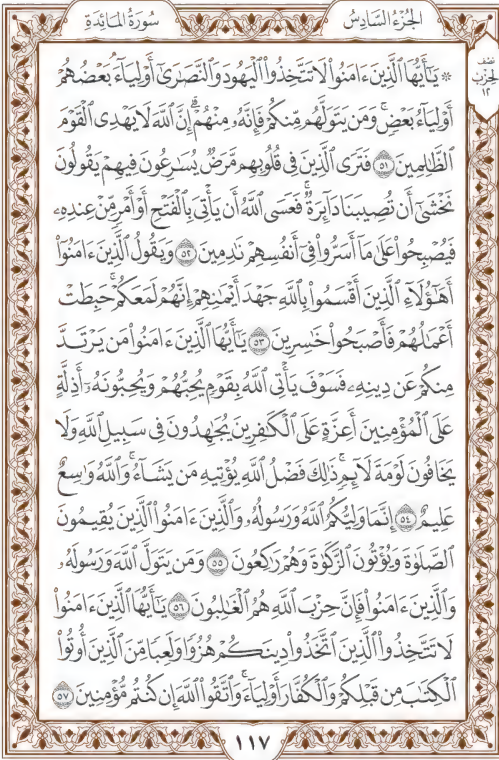 الجُزْءُ السَّادِسُ
سُورَةُ المَائِدَةِ
نصف
الحزب
١٢
۞ يَٰٓأَيُّهَا ٱلَّذِينَ ءَامَنُواْ لَا تَتَّخِذُواْ ٱلۡيَهُودَ وَٱلنَّصَٰرَىٰٓ أَوۡلِيَآءَۘ بَعۡضُهُمۡ
أَوۡلِيَآءُ بَعۡضٖۚ وَمَن يَتَوَلَّهُم مِّنكُمۡ فَإِنَّهُۥ مِنۡهُمۡۗ إِنَّ ٱللَّهَ لَا يَهۡدِي ٱلۡقَوۡمَ
ٱلظَّٰلِمِينَ ٥١ فَتَرَى ٱلَّذِينَ فِي قُلُوبِهِم مَّرَضٞ يُسَٰرِعُونَ فِيهِمۡ يَقُولُونَ
نَخۡشَىٰٓ أَن تُصِيبَنَا دَآئِرَةٞۚ فَعَسَى ٱللَّهُ أَن يَأۡتِيَ بِٱلۡفَتۡحِ أَوۡ أَمۡرٖ مِّنۡ عِندِهِۦ
فَيُصۡبِحُواْ عَلَىٰ مَآ أَسَرُّواْ فِيٓ أَنفُسِهِمۡ نَٰدِمِينَ ٥٢ وَيَقُولُ ٱلَّذِينَ ءَامَنُوٓاْ
أَهَٰٓؤُلَآءِ ٱلَّذِينَ أَقۡسَمُواْ بِٱللَّهِ جَهۡدَ أَيۡمَٰنِهِمۡ إِنَّهُمۡ لَمَعَكُمۡۚ حَبِطَتۡ
أَعۡمَٰلُهُمۡ فَأَصۡبَحُواْ خَٰسِرِينَ ٥٣ يَٰٓأَيُّهَا ٱلَّذِينَ ءَامَنُواْ مَن يَرۡتَدَّ
مِنكُمۡ عَن دِينِهِۦ فَسَوۡفَ يَأۡتِي ٱللَّهُ بِقَوۡمٖ يُحِبُّهُمۡ وَيُحِبُّونَهُۥٓ أَذِلَّةٍ
عَلَى ٱلۡمُؤۡمِنِينَ أَعِزَّةٍ عَلَى ٱلۡكَٰفِرِينَ يُجَٰهِدُونَ فِي سَبِيلِ ٱللَّهِ وَلَا
يَخَافُونَ لَوۡمَةَ لَآئِمٖۚ ذَٰلِكَ فَضۡلُ ٱللَّهِ يُؤۡتِيهِ مَن يَشَآءُۚ وَٱللَّهُ وَٰسِعٌ
عَلِيمٌ ٥٤ إِنَّمَا وَلِيُّكُمُ ٱللَّهُ وَرَسُولُهُۥ وَٱلَّذِينَ ءَامَنُواْ ٱلَّذِينَ يُقِيمُونَ
ٱلصَّلَوٰةَ وَيُؤۡتُونَ ٱلزَّكَوٰةَ وَهُمۡ رَٰكِعُونَ ٥٥ وَمَن يَتَوَلَّ ٱللَّهَ وَرَسُولَهُۥ
وَٱلَّذِينَ ءَامَنُواْ فَإِنَّ حِزۡبَ ٱللَّهِ هُمُ ٱلۡغَٰلِبُونَ ٥٦ يَٰٓأَيُّهَا ٱلَّذِينَ ءَامَنُواْ
لَا تَتَّخِذُواْ ٱلَّذِينَ ٱتَّخَذُواْ دِينَكُمۡ هُزُوٗا وَلَعِبٗا مِّنَ ٱلَّذِينَ أُوتُواْ
ٱلۡكِتَٰبَ مِن قَبۡلِكُمۡ وَٱلۡكُفَّارَ أَوۡلِيَآءَۚ وَٱتَّقُواْ ٱللَّهَ إِن كُنتُم مُّؤۡمِنِينَ ٥٧
١١٧